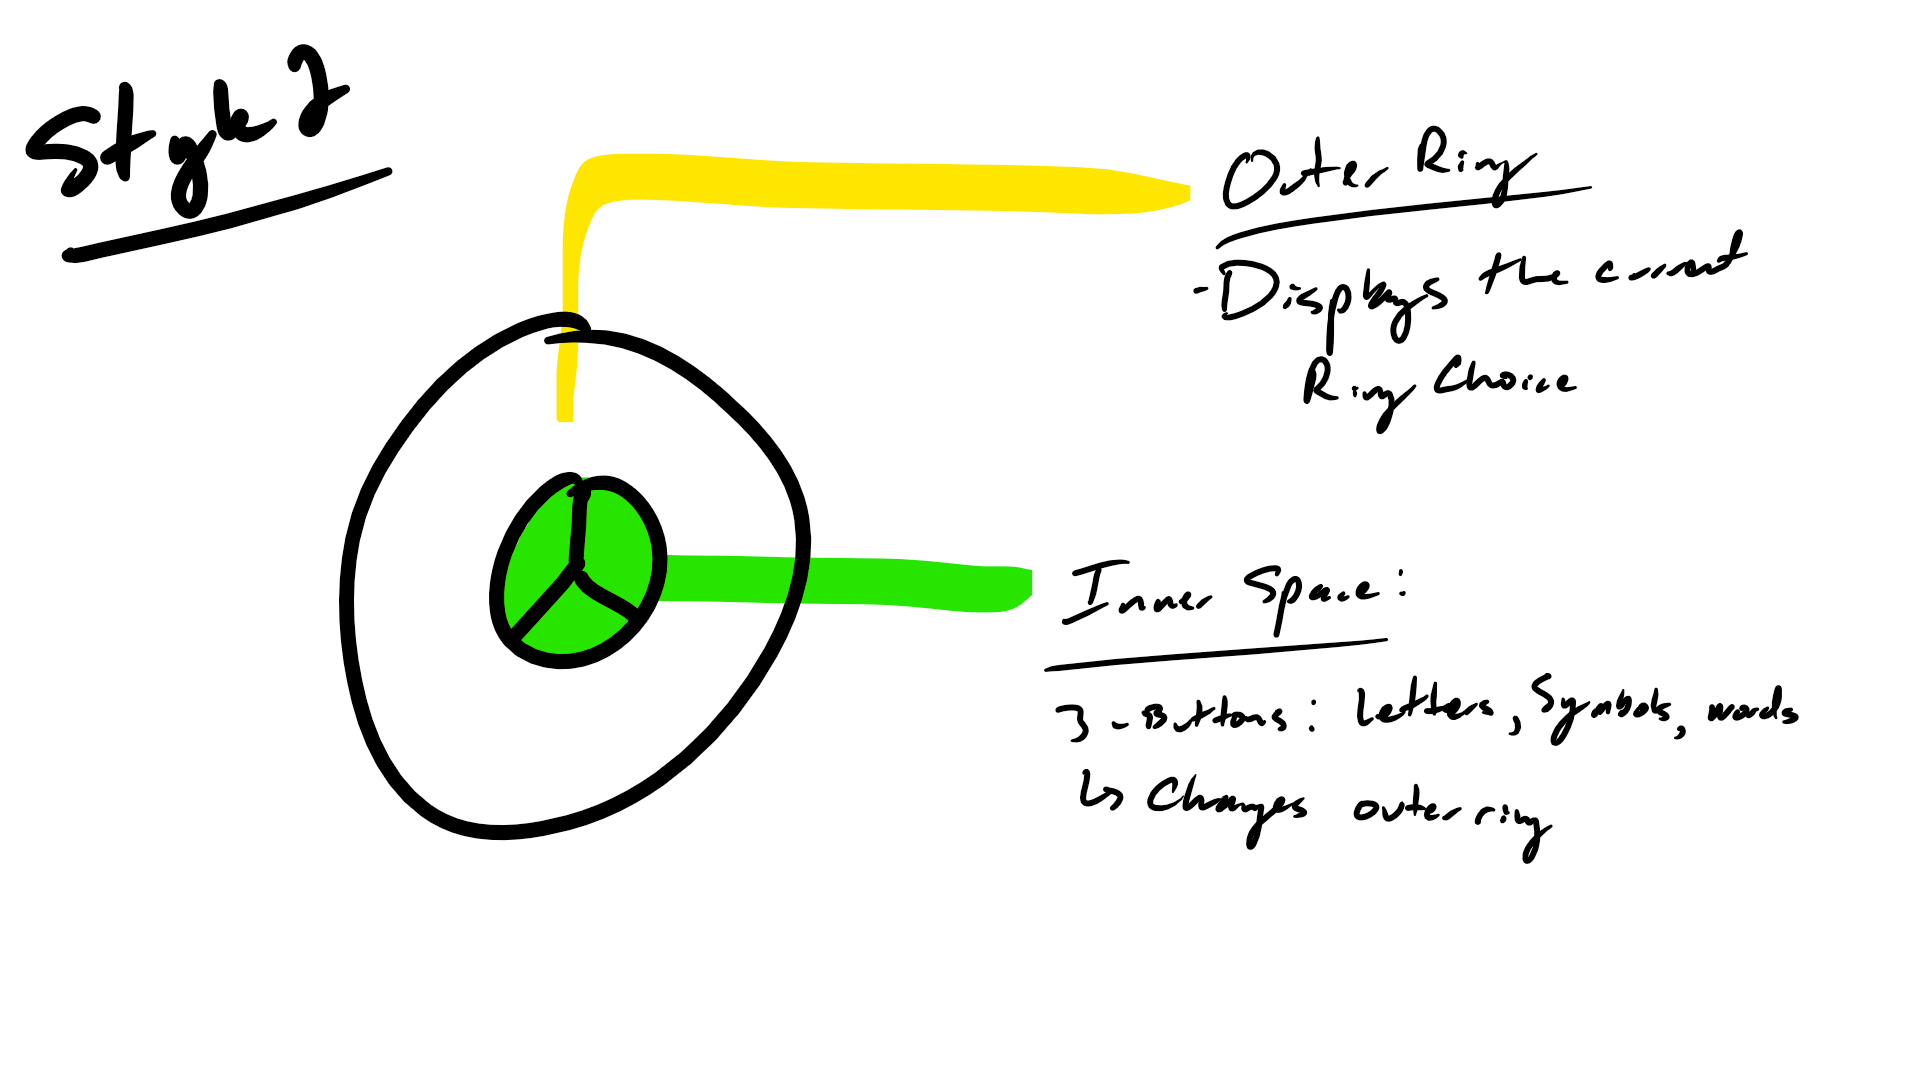 Style 2
Outer Ring
- Displays the current
Ring Choice
Inner Space:
3 - Buttons: Letters, Symbols, words
↳ Changes outer ring